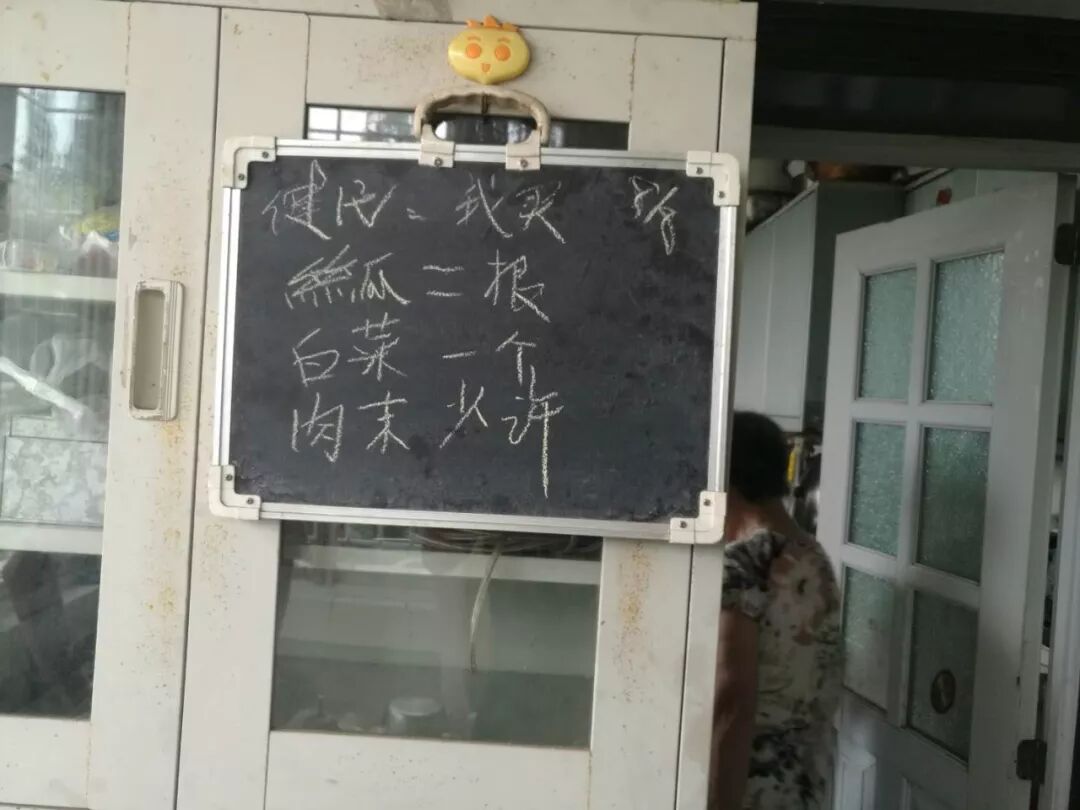 健民：我买
丝瓜二根
白菜一个
肉末少许